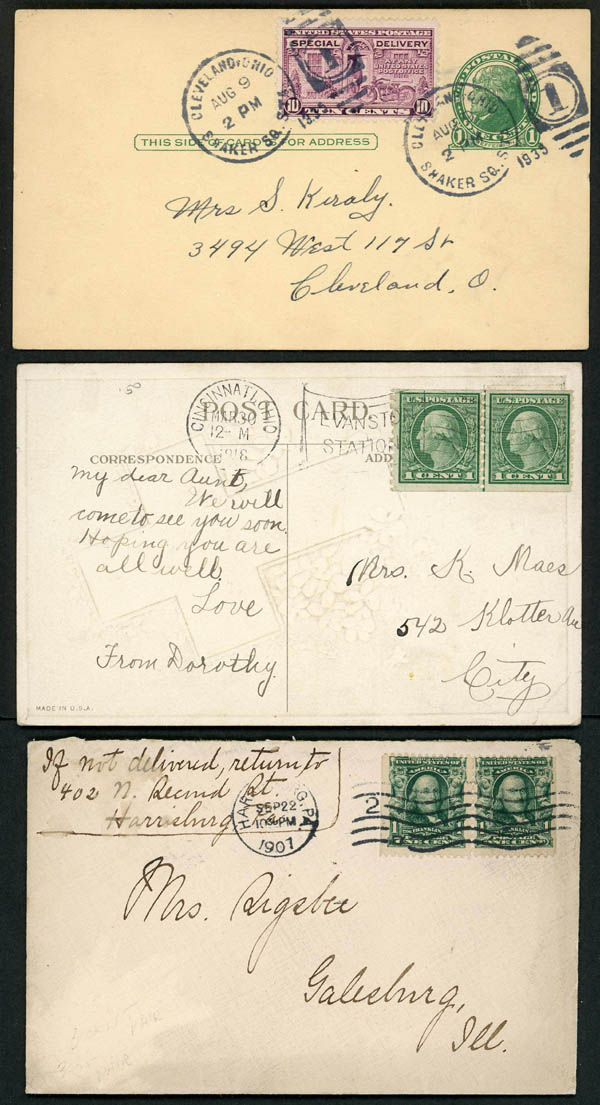 UNITED STATES POSTAGE
SPECIAL DELIVERY
AT ANY
UNITED STATES
POST OFFICE
10 TEN CENTS 10
CLEVELAND, OHIO
AUG 9
2 PM
SHAKER SQ. S
1933
1
U.S. POSTAL CARD
1 1
CLEVELAND, OHIO
AUG
2 PM
SHAKER SQ. S
1933
1
THIS SIDE OF CARD IS FOR ADDRESS
Mrs S. Kiraly.
3494 West 117 St
Cleveland, O.
50
POST CARD
CINCINNATI, OHIO
MAR 30
12- M
1918
EVANSTO
STATION
U.S. POSTAGE
1 CENT 1
U.S. POSTAGE
1 CENT 1
CORRESPONDENCE
ADD
My dear Aunt,
We will
come to see you soon.
Hoping you are
all well.
Love
From Dorothy.
Mrs. K. Maes
542 Klotter Av
City
MADE IN U.S.A.
If not delivered, return to
402 N. Second St.
Harrisburg
HARRISBURG, PA.
SEP 22
10 PM
1907
2
UNITED STATES OF
AMERICA
FRANKLIN
ONE CENT
UNITED STATES OF
AMERICA
FRANKLIN
ONE CENT
Mrs. Rigsbee
Galesburg,
Ill.